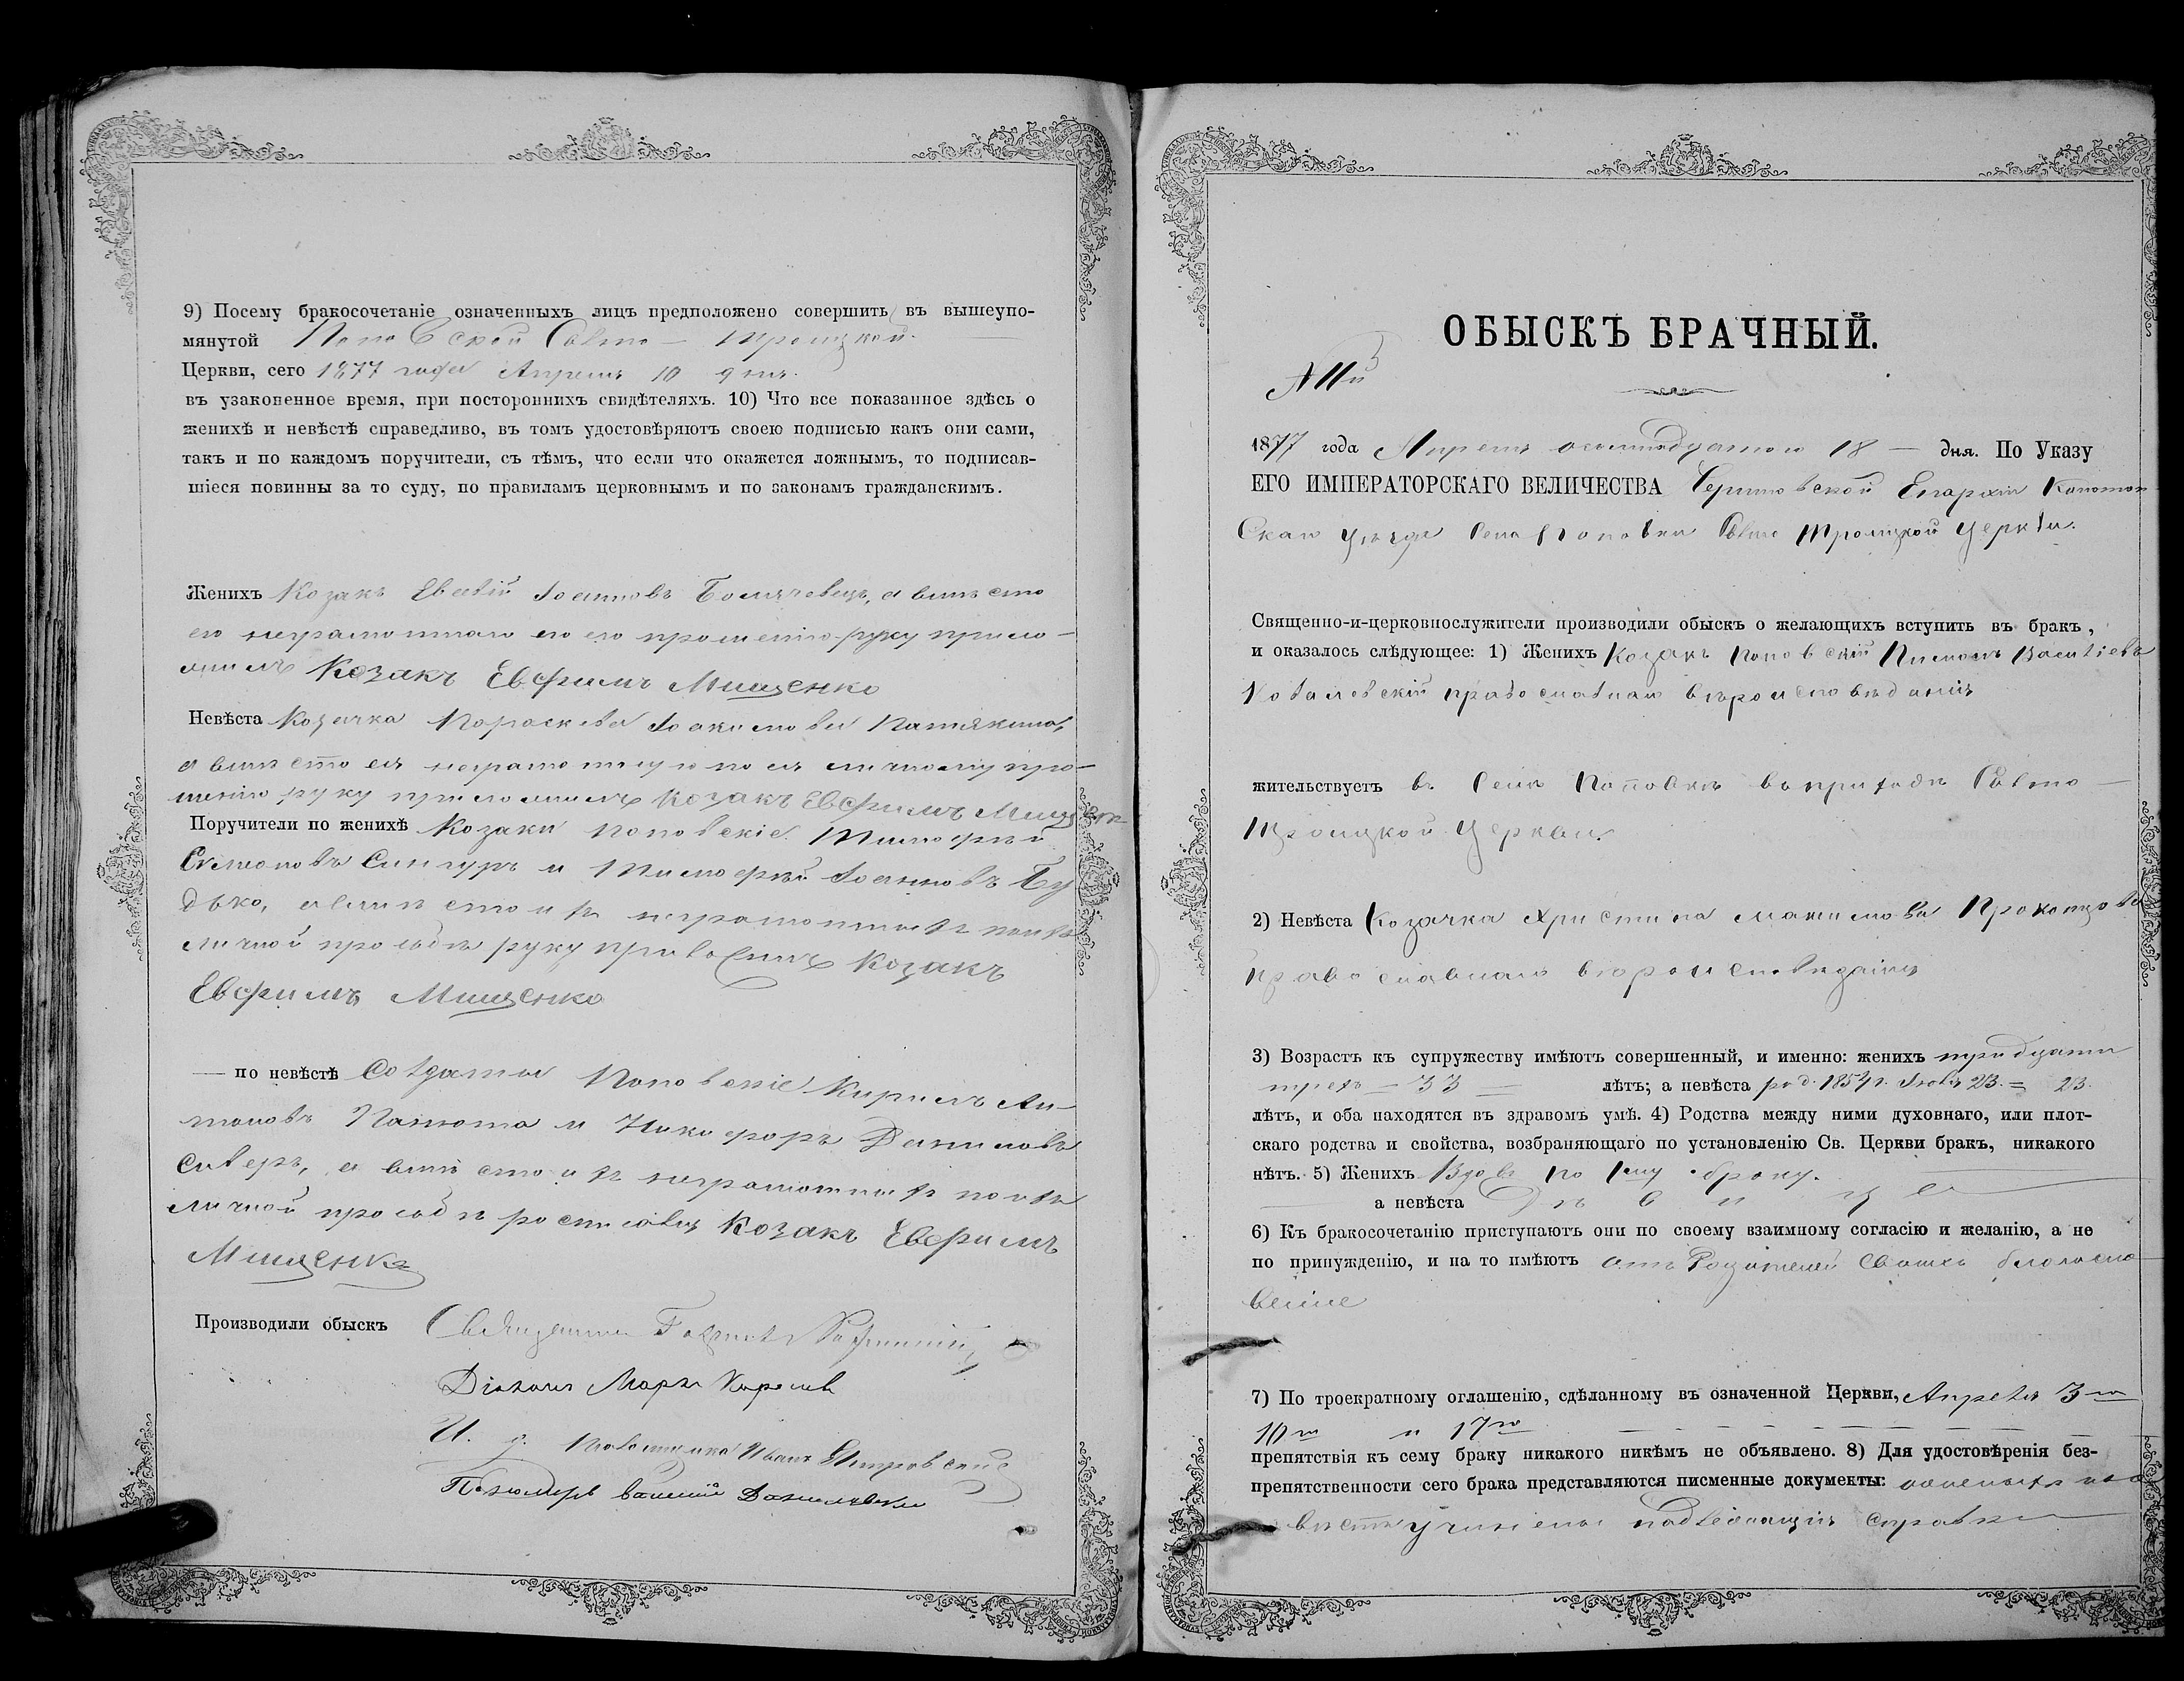 9) Посему бракосочетаніе означенныхъ лицъ предположено совершить въ вышеупо-
мянутой Поповской Свято — Троицкой.
Церкви, сего 1877 года Апреля 10 дня.
въ узаконенное время, при постороннихъ свидѣтеляхъ. 10) Что все показанное здѣсь о
женихѣ и невѣстѣ справедливо, въ томъ удостовѣряютъ своею подписью какъ они сами,
такъ и по каждомъ поручители, съ тѣмъ, что если что окажется ложнымъ, то подписав-
шіеся повинны за то суду, по правиламъ церковнымъ и по законамъ гражданскимъ.
Женихъ Козакъ Іоанновъ а вмѣсто
его неграмотнаго по его прошенію руку прило-
жилъ Козакъ Евфимъ Мищенко
Невѣста Козачка Параскева Іоакимова
а вмѣсто ея неграмотную по ея личному про-
шенію руку приложилъ Козакъ Евфимъ Мищенко
Поручители по женихѣ Козаки Поповскіе Тимофѣй
Симеоновъ Сингуръ и Тимофѣй Іоанновъ Бу
дько, а вмѣсто ихъ неграмотныхъ по ихъ
личной прозьбѣ руку Козакъ
Евфимъ Мищенко
— по невѣстѣ Солдаты Поповскіе Кирилъ Ан-
тоновъ и Никифоръ Даниловъ
а вмѣсто ихъ неграмотныхъ по ихъ
личной прозьбѣ Козакъ Евфимъ
Мищенко
Производили обыскъ Священникъ
Діаконъ Маркъ
И. д. Псаломщика Иванъ
Пономарь Василій
ОБЫСКЪ БРАЧНЫЙ.
№ 11й
1877 года Апреля осьмнадцатого 18 — дня. По Указу
ЕГО ИМПЕРАТОРСКАГО ВЕЛИЧЕСТВА Черниговской Епархіи Конотоп
скаго уѣзда села Поповки Свято Троицкой церкви.
Священно-и-церковнослужители производили обыскъ о желающихъ вступить въ бракъ,
и оказалось слѣдующее: 1) Женихъ Козакъ Поповскій Пименъ Василіевъ
Ковалевскій православнаго вѣроисповѣданія
жительствуетъ въ селѣ Поповкѣ въ приходѣ Свято —
Троицкой Церкви.
2) Невѣста Козачка Христина Максимова
православнаго вѣроисповѣданія
3) Возрастъ къ супружеству имѣютъ совершенный, и именно: женихъ тридцати
трехъ — 33 — лѣтъ; а невѣста род. 1854 г. Іюля 23. = 23.
лѣтъ, и оба находятся въ здравомъ умѣ. 4) Родства между ними духовнаго, или плот-
скаго родства и свойства, возбраняющаго по установленію Св. Церкви бракъ, никакого
нѣтъ. 5) Женихъ Вдовъ по 1му браку.
а невѣста Дѣвица
6) Къ бракосочетанію приступаютъ они по своему взаимному согласію и желанію, а не
по принужденію, и на то имѣютъ отъ Родителей своихъ благосло
веніе
7) По троекратному оглашенію, сдѣланному въ означенной Церкви, Апреля 3го
10го и 17го
препятствія къ сему браку никакого никѣмъ не объявлено. 8) Для удостовѣренія без-
препятственности сего брака представляются писменные документы:
учинены надлежащія справки